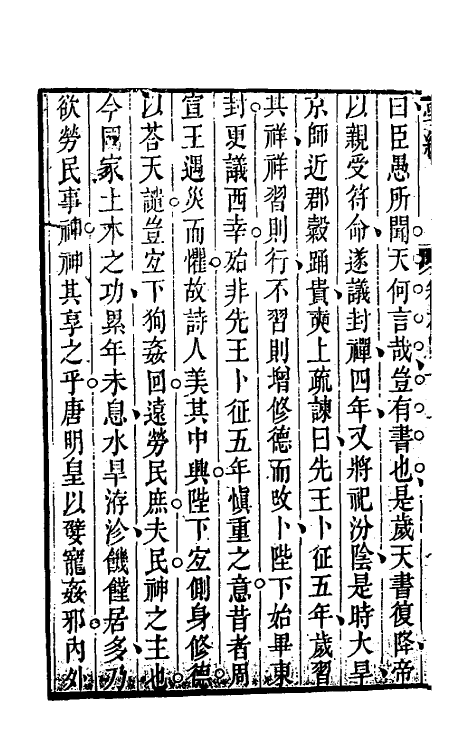 曰臣愚所聞天何言哉豈有書也是歲天書復降帝
以親受符命遂議封禪四年又將祀汾陰是時大旱
京師近郡穀踊貴奭上疏諫曰先王卜征五年歲習
其祥祥習則行不習則增修德而改卜陛下始畢東
封更議西幸殆非先王卜征五年慎重之意昔者周
宣王遇災而懼故詩人美其中興陛下宜側身修德
以荅天譴豈宜下狥姦回遠勞民庶夫民神之主也
今國家土木之功累年未息水旱洊沴饑饉居多乃
欲勞民事神神其享之乎唐明皇以嬖寵姦邪內外